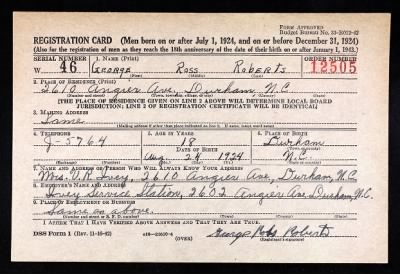 Form Approved
Budget Bureau No. 33-R012-42
REGISTRATION CARD (Men born on or after July 1, 1924, and on or before December 31, 1924)
(Also for the registration of men as they reach the 18th anniversary of the date of their birth on or after January 1, 1943.)
SERIAL NUMBER 1. NAME (Print) ORDER NUMBER
W 46 GEORGE Ross ROBERTS 12505
(First) (Middle) (Last)
2. PLACE OF RESIDENCE (Print)
2610 Angier Ave. Durham N.C.
(Number and street) (Town, township, village, or city) (County) (State)
[THE PLACE OF RESIDENCE GIVEN ON LINE 2 ABOVE WILL DETERMINE LOCAL BOARD
JURISDICTION; LINE 2 OF REGISTRATION CERTIFICATE WILL BE IDENTICAL]
3. MAILING ADDRESS
Same
4. TELEPHONE 5. AGE IN YEARS 6. PLACE OF BIRTH
J-5764 18 Durham
DATE OF BIRTH
Aug. 24 1924 N.C.
7. NAME AND ADDRESS OF PERSON WHO WILL ALWAYS KNOW YOUR ADDRESS
Mrs. V.R. Ivey, 2610 Angier Ave, Durham, N.C.
8. EMPLOYER'S NAME AND ADDRESS
Ivey Service Station, 2602 Angier Ave. Durham, N.C.
9. PLACE OF EMPLOYMENT OR BUSINESS
Same as above.
(Number and street or R. F. D. number) (Town) (County) (State)
I AFFIRM THAT I HAVE VERIFIED ABOVE ANSWERS AND THAT THEY ARE TRUE.
DSS Form 1 (Rev. 11-16-42) (OVER) George Ross Roberts
(Registrant's signature)